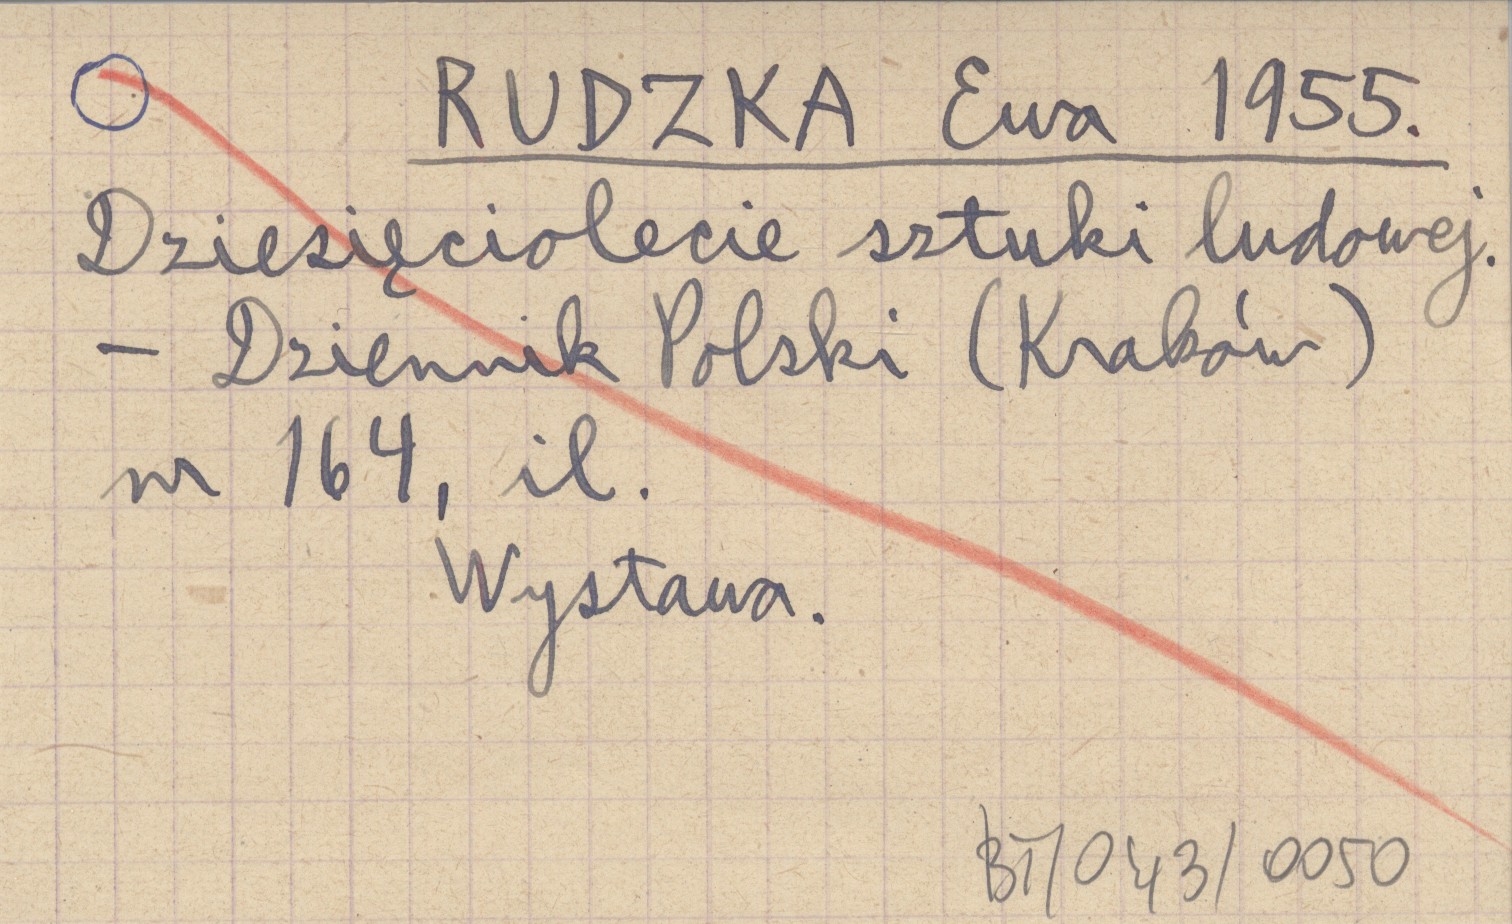 RUDZKA Ewa 1955.
Dziesięciolecie sztuki ludowej.
— Dziennik Polski (Kraków)
nr 164, il.
Wystawa.
BT/043/0050